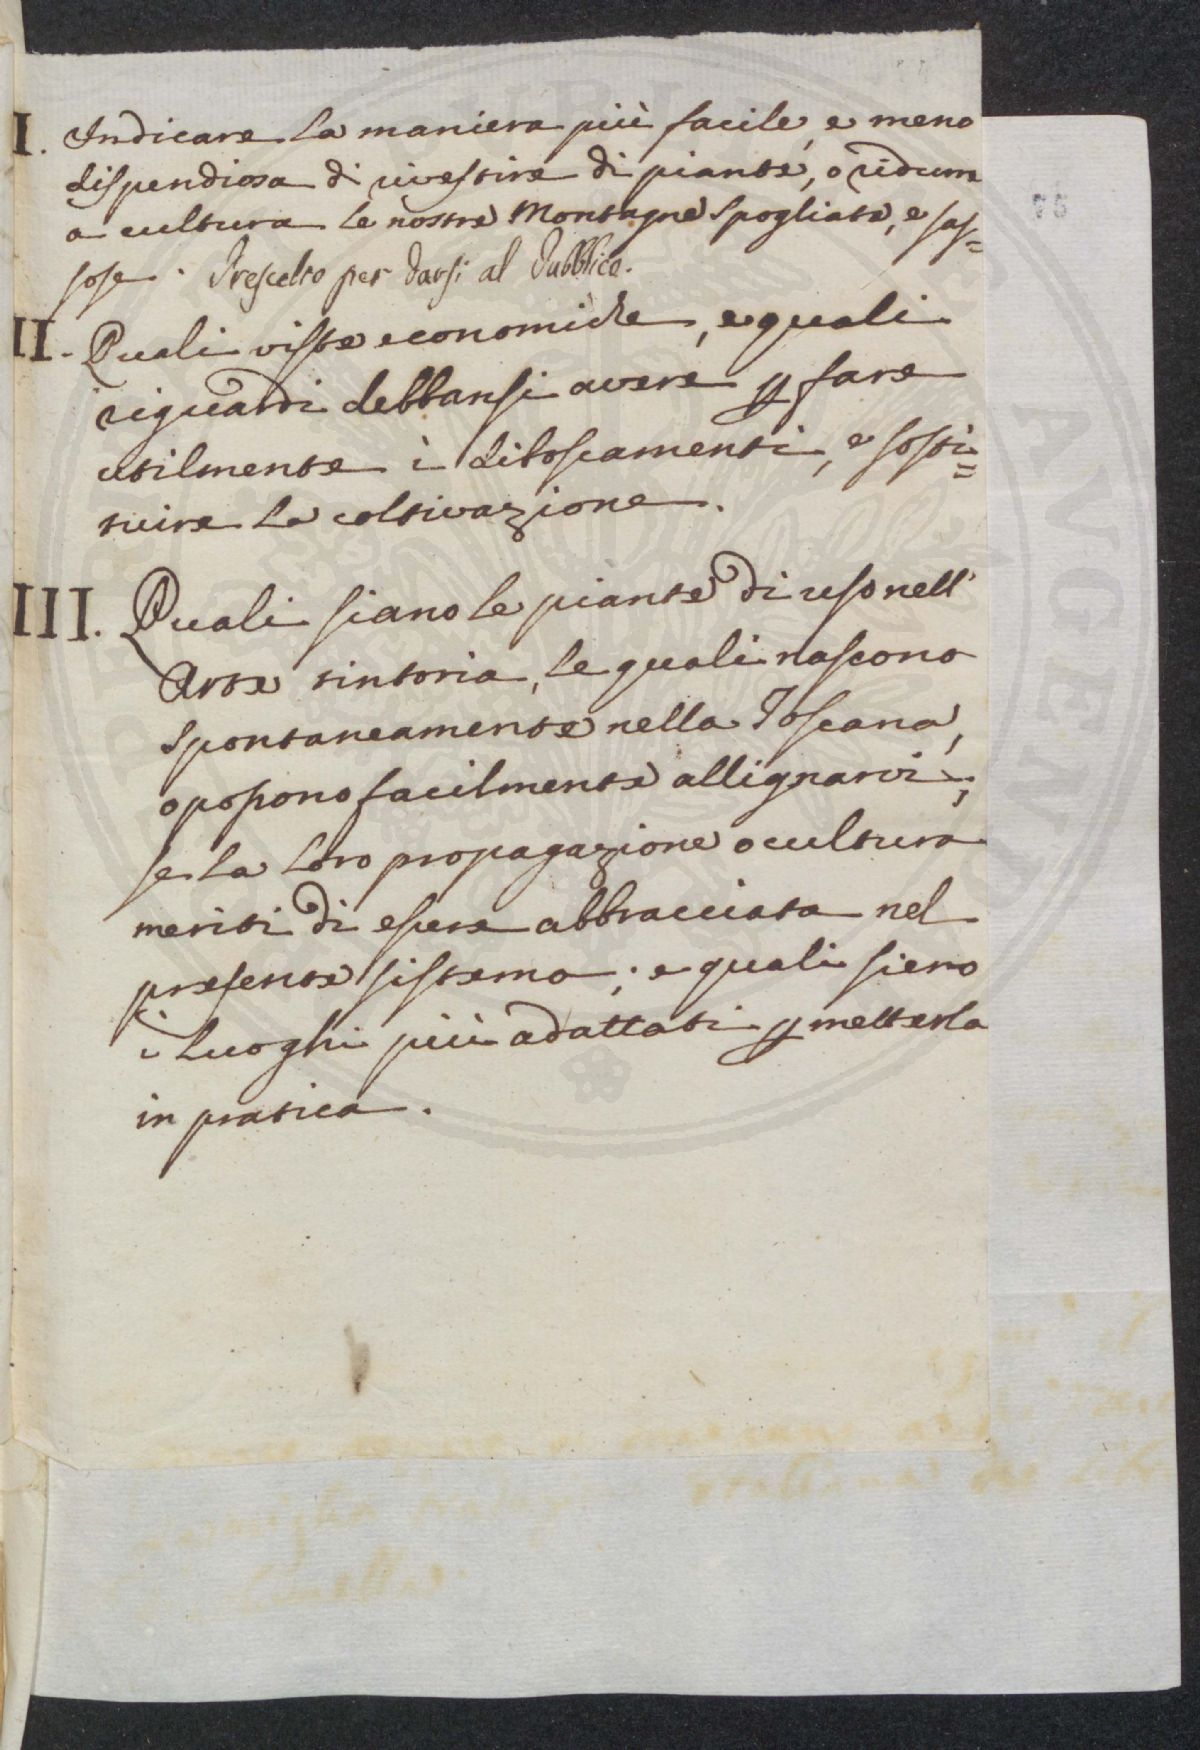 I. Indicare la maniera più facile, e meno
dispendiosa di rivestire di piante, o ridurre
a cultura le nostre Montagne spogliate, e sas=
sose. Prescelto per darsi al Pubblico.
II. Quali viste economiche, e quali
riguardi debbansi avere p fare
utilmente i diboscamenti, e sosti=
tuire la coltivazione.
III. Quali siano le piante di uso nell'
Arte tintoria, le quali nascono
spontaneamente nella Toscana,
o possono facilmente allignarvi;
se la loro propagazione o cultura
meriti di essere abbracciata nel
presente sistema; e quali sieno
i luoghi più adattati p metterla
in pratica.